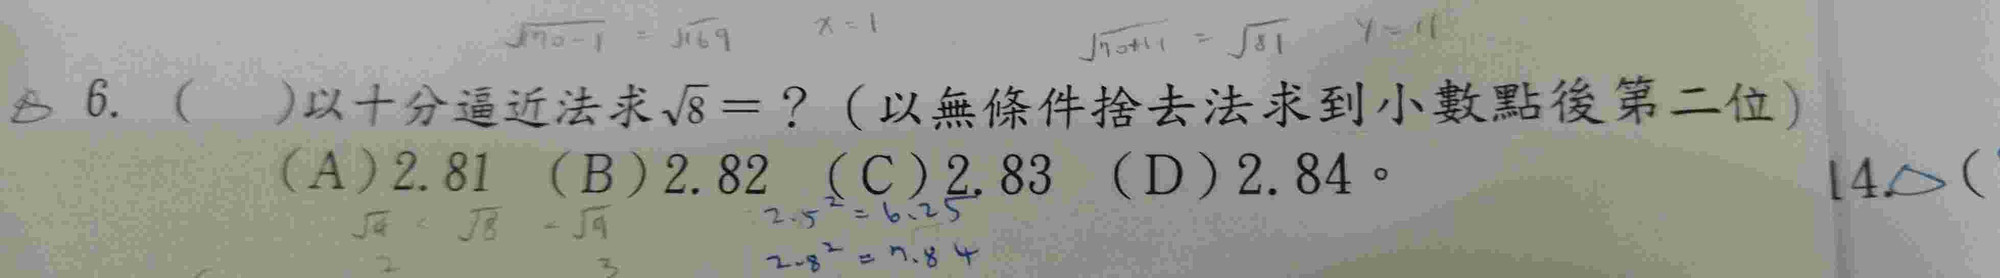 √170-1 = √169 x=1 √70+11 = √81 y=11
6. ( )以十分逼近法求√8=？(以無條件捨去法求到小數點後第二位)
(A)2.81 (B)2.82 (C)2.83 (D)2.84。
14. (
√4 < √8 - √9 2.5²=6.25
2 3 2.8²=7.84